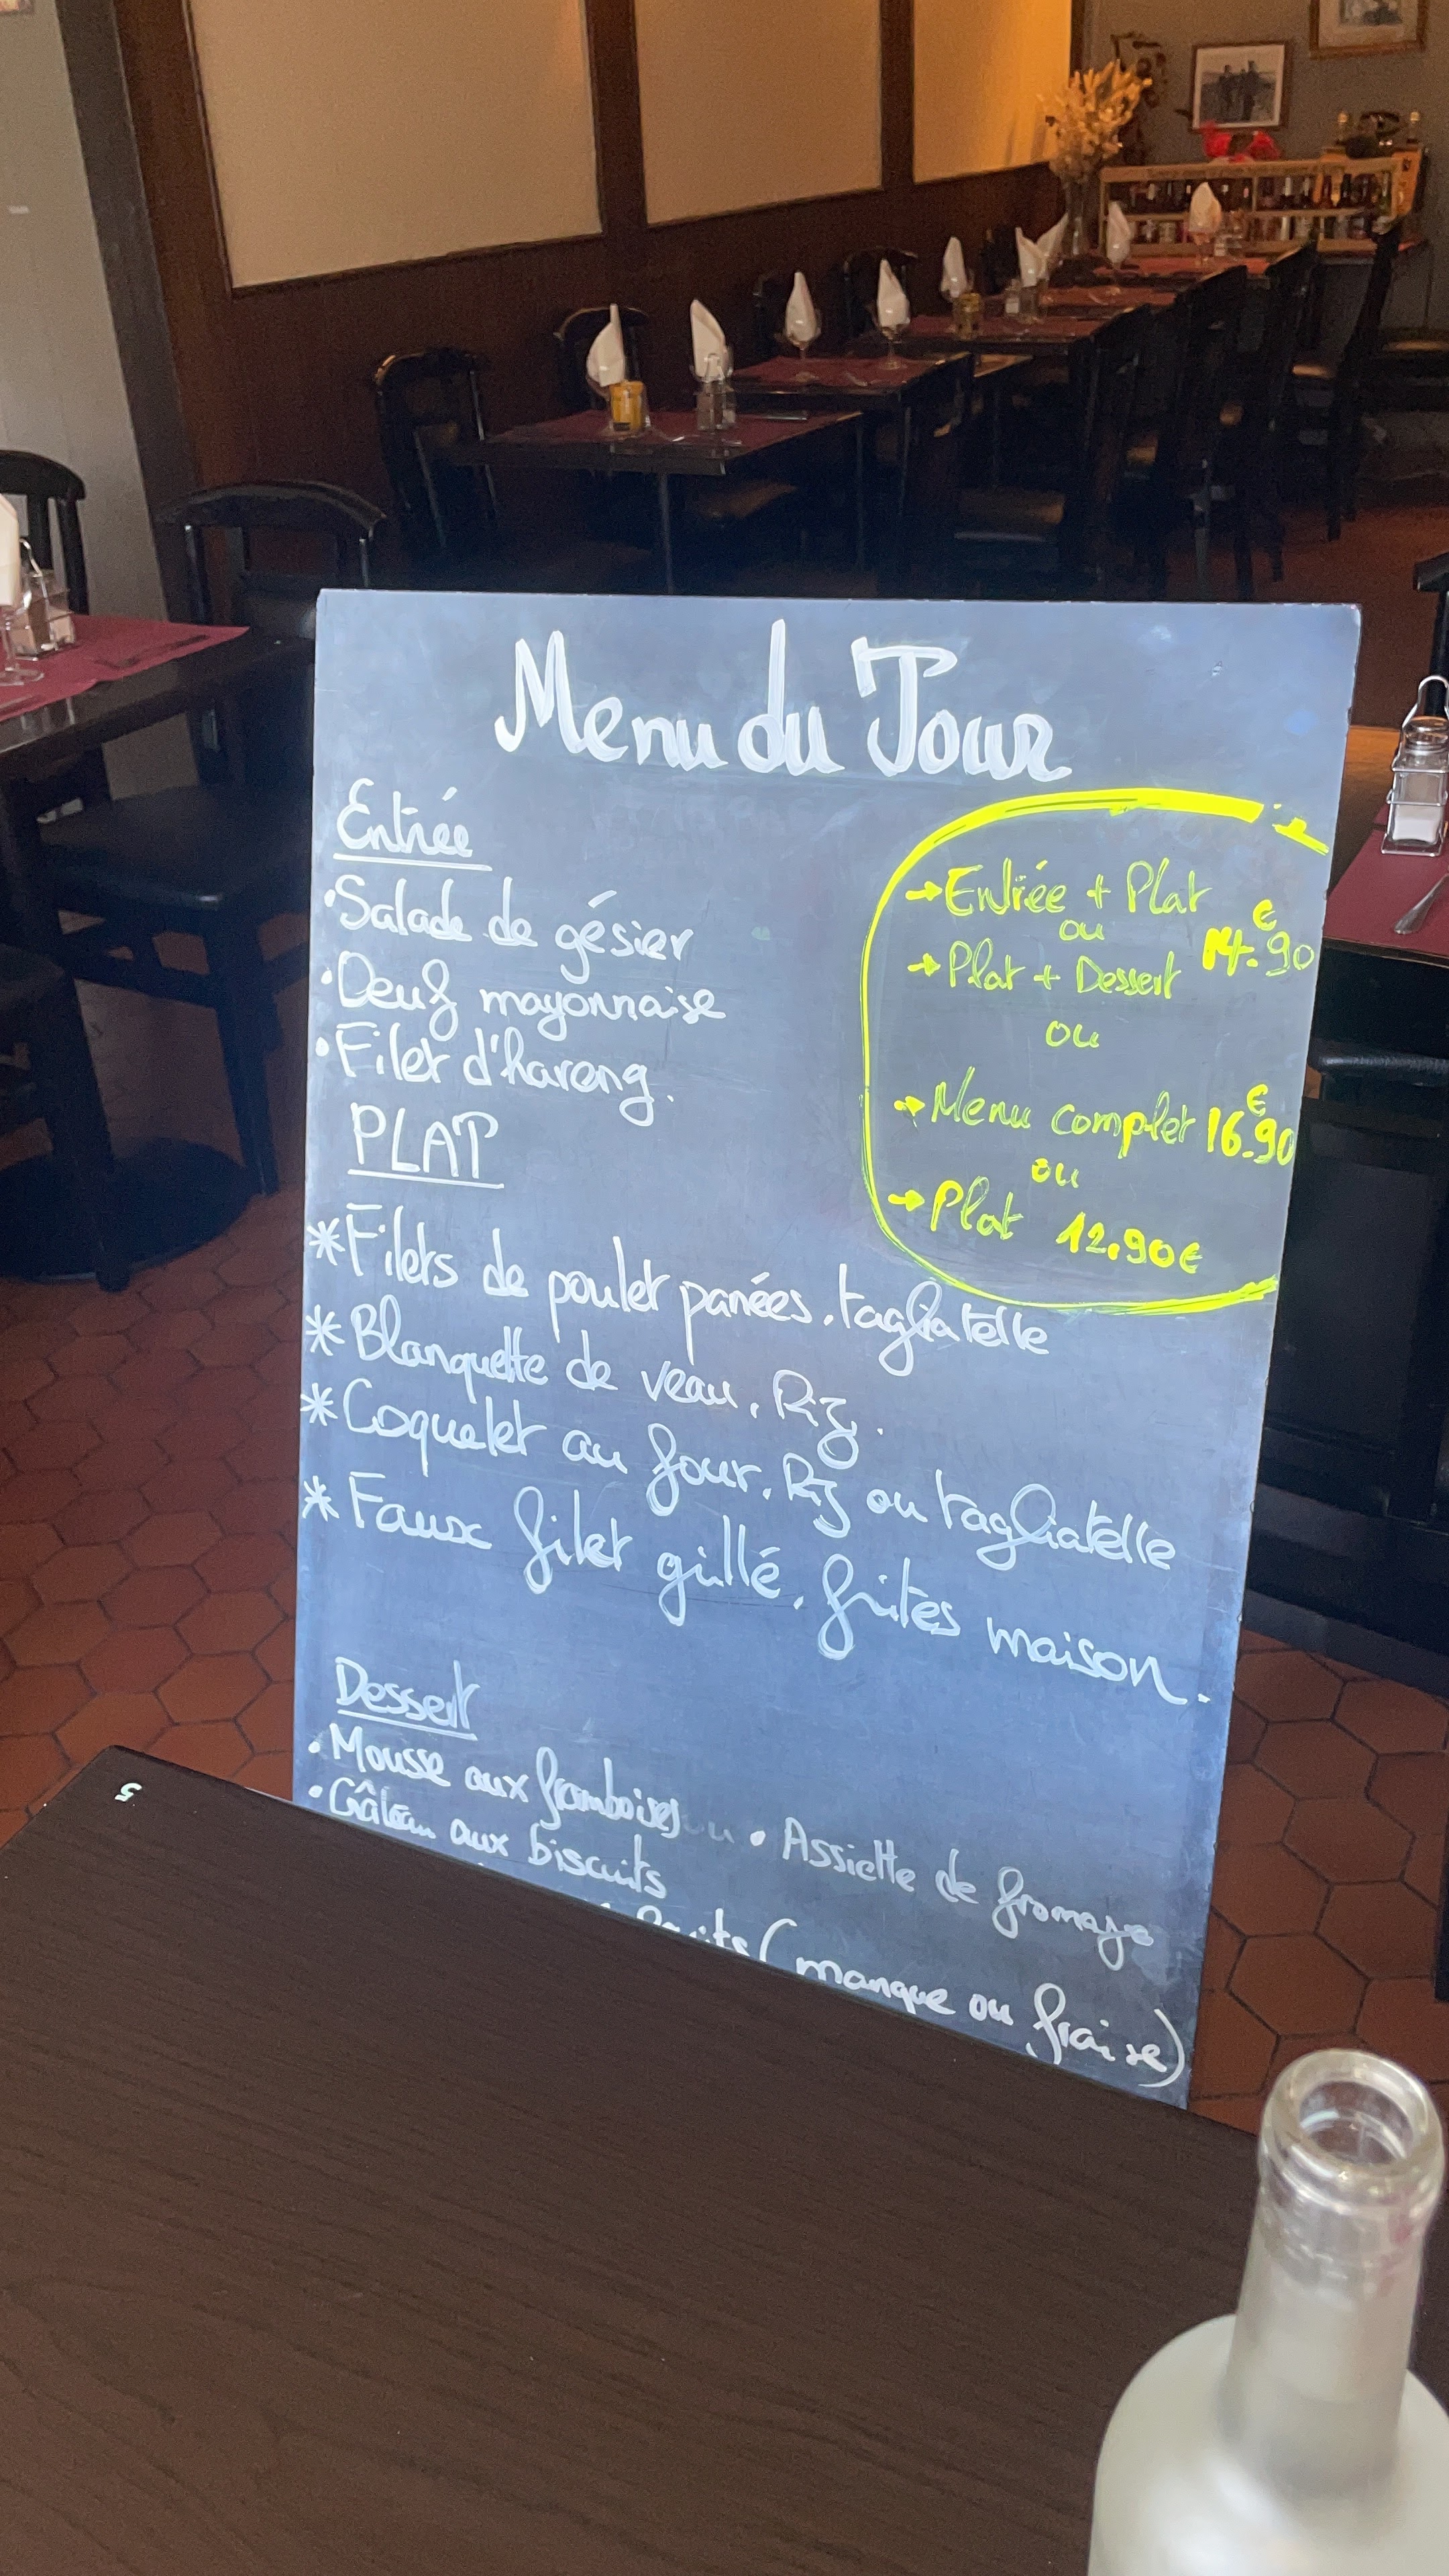 Menu du Jour
Entrée
• Salade de gésier
• Oeuf mayonnaise
• Filet d'hareng.
→ Entrée + Plat
ou
→ Plat + Dessert
14.90 €
ou
→ Menu complet 16.90 €
ou
→ Plat 12.90€
PLAT
* Filets de poulet panées. tagliatelle
* Blanquette de veau. Riz.
* Coquelet au four. Riz ou tagliatelle
* Faux filet grillé. frites maison.
Dessert
• Mousse aux framboises
• Gâteau aux biscuits
• Assiette de fromage
(manque ou fraise)
5